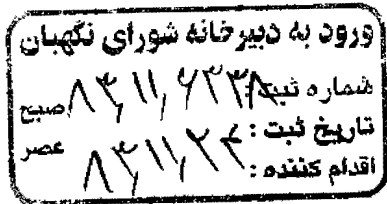 ورود به دبیرخانه شورای نگهبان
شماره ثبت: ۸۳٫۱۱٫۶۳۳۸ صبح
تاریخ ثبت: ۸۳٫۱۱٫۲۲ عصر
اقدام کننده: